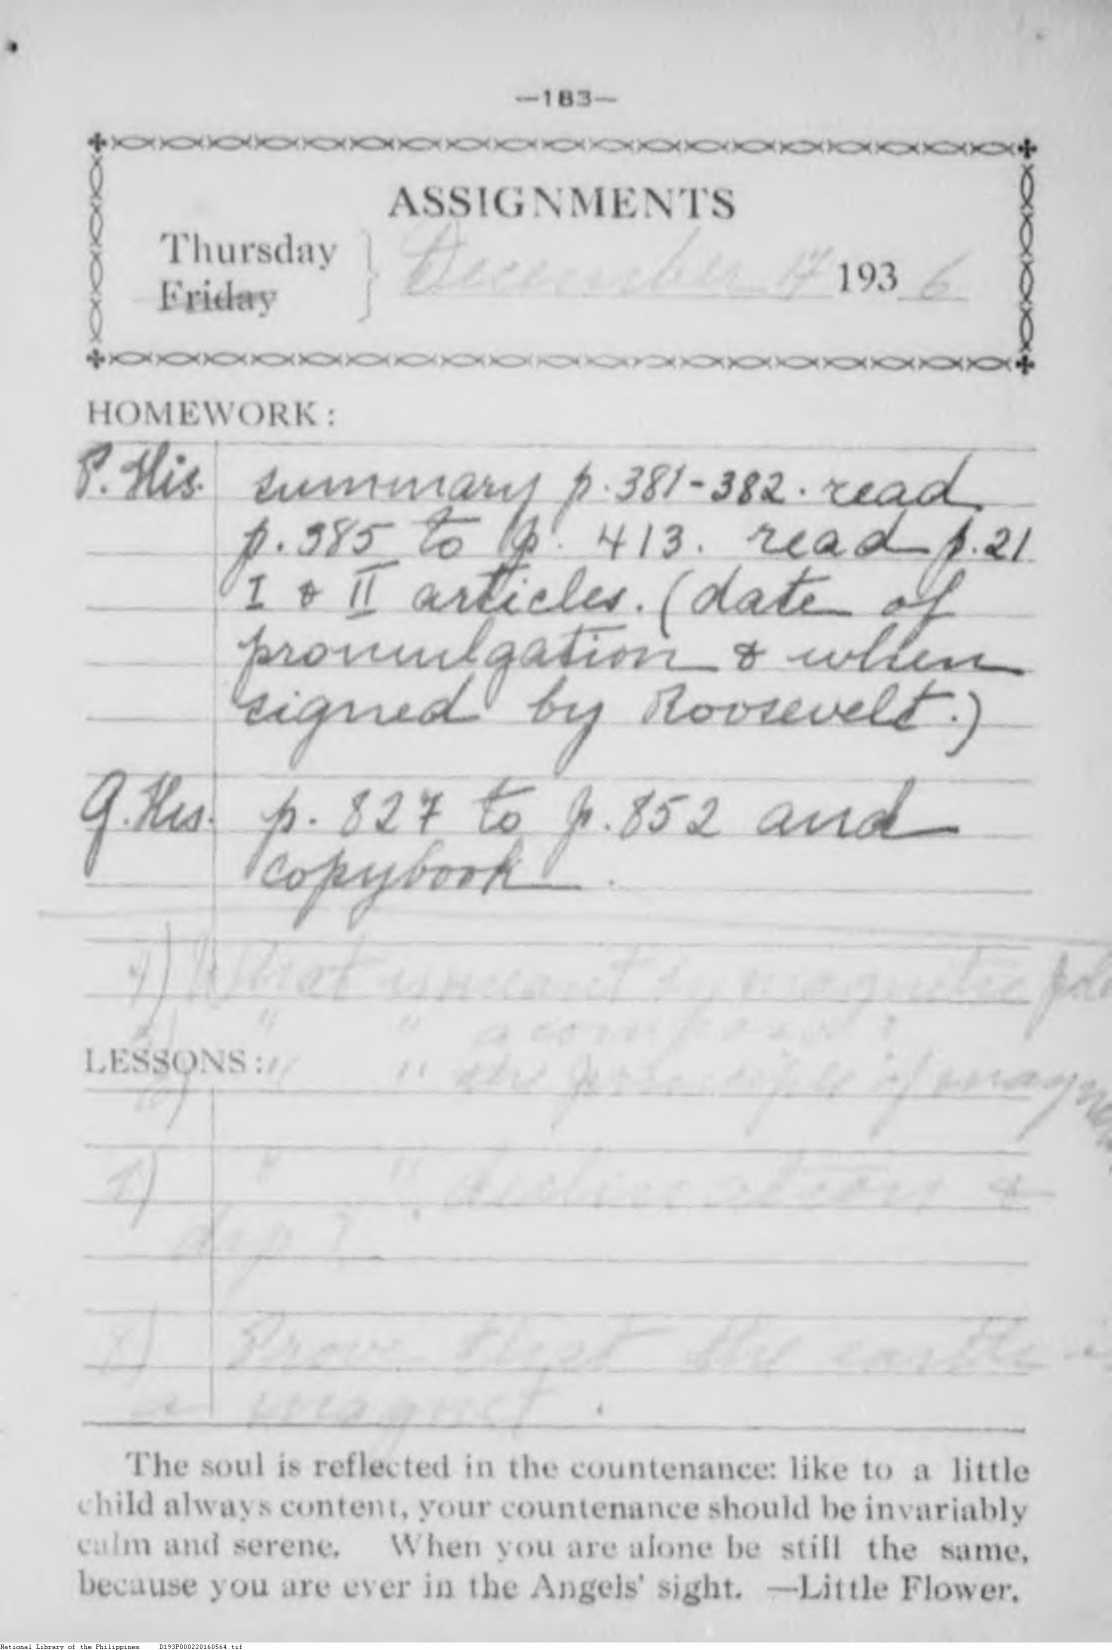 —183—
ASSIGNMENTS
Thursday
Friday
December 17 193 6
HOMEWORK:
P. His. summary p. 381-382. read
p. 385 to p. 413. read p. 21
I & II articles. (date of
promulgation & when
signed by Roosevelt.)
G. His. p. 827 to p. 852 and
copybook.
4) What is meant by magnetic
5) " " a compass?
LESSONS:
6) " " the principle of magnet
7) " " declination &
dip?
8) Prove that the earth is
a magnet.
The soul is reflected in the countenance: like to a little
child always content, your countenance should be invariably
calm and serene. When you are alone be still the same,
because you are ever in the Angels' sight. —Little Flower.
National Library of the Philippines D193P000220160564.tif